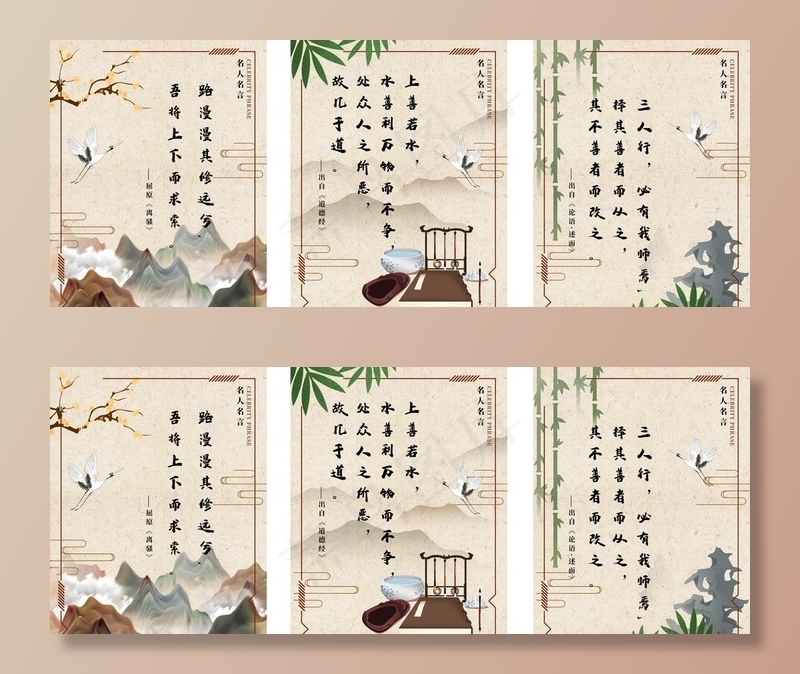 CELEBRITY PHRASE
名人名言
路漫漫其修远兮，
吾将上下而求索。
——屈原《离骚》
CELEBRITY PHRASE
名人名言
上善若水，
水善利万物而不争，
处众人之所恶，
故几于道。
——出自《道德经》
CELEBRITY PHRASE
名人名言
三人行，必有我师焉、
择其善者而从之，
其不善者而改之。
——出自《论语·述而》
CELEBRITY PHRASE
名人名言
路漫漫其修远兮，
吾将上下而求索。
——屈原《离骚》
CELEBRITY PHRASE
名人名言
上善若水，
水善利万物而不争，
处众人之所恶，
故几于道。
——出自《道德经》
CELEBRITY PHRASE
名人名言
三人行，必有我师焉、
择其善者而从之，
其不善者而改之。
——出自《论语·述而》